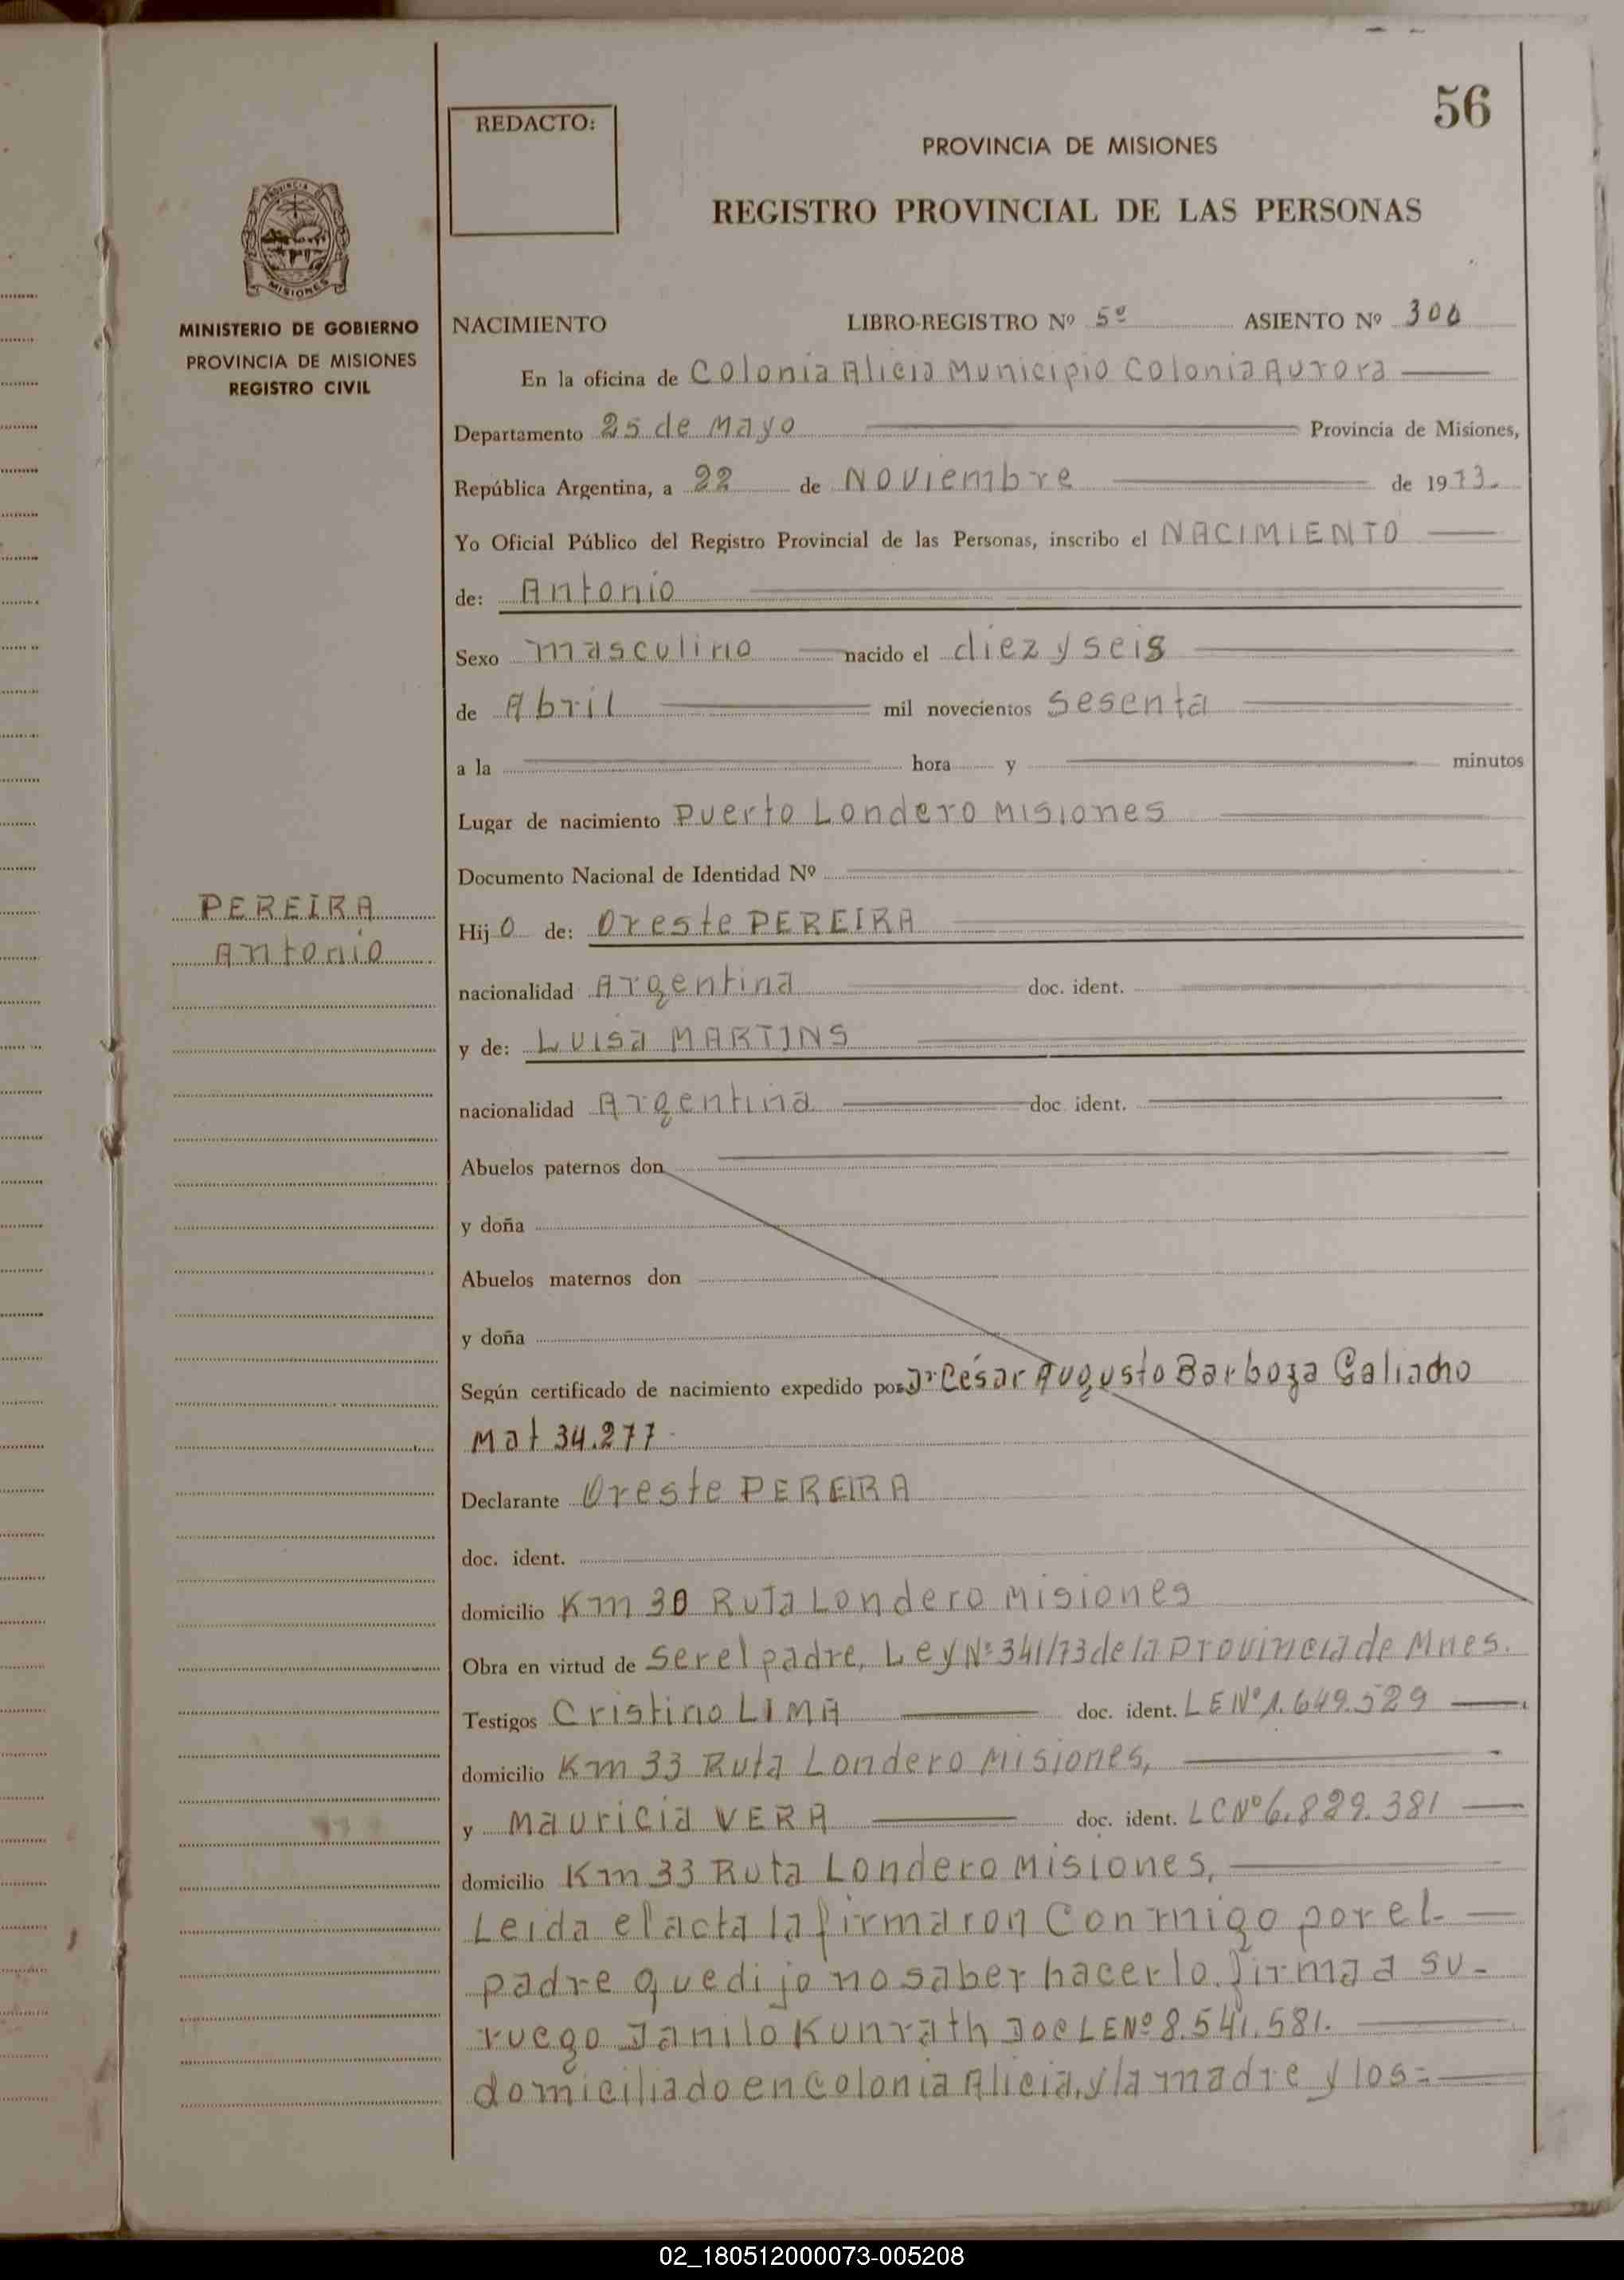 56
REDACTO:
PROVINCIA DE MISIONES
REGISTRO PROVINCIAL DE LAS PERSONAS
PROVINCIA DE
MISIONES
MINISTERIO DE GOBIERNO
PROVINCIA DE MISIONES
REGISTRO CIVIL
NACIMIENTO LIBRO-REGISTRO Nº 5º ASIENTO Nº
En la oficina de Colonia Alicia Municipio Colonia Aurora
Departamento 25 de Mayo Provincia de Misiones,
República Argentina, a 22 de Noviembre de 1973.
Yo Oficial Público del Registro Provincial de las Personas, inscribo el NACIMIENTO
de: Antonio
Sexo masculino nacido el diez y seis
de Abril mil novecientos sesenta
a la hora y minutos
Lugar de nacimiento Puerto Londero Misiones
Documento Nacional de Identidad Nº
PEREIRA
Antonio
Hijo de: Oreste PEREIRA
nacionalidad Argentina doc. ident.
y de: Luisa MARTINS
nacionalidad Argentina doc. ident.
Abuelos paternos don
y doña
Abuelos maternos don
y doña
Según certificado de nacimiento expedido por Dr César Augusto Barboza
Mat 34.277
Declarante Oreste PEREIRA
doc. ident.
domicilio Km 30 Ruta Londero Misiones
Obra en virtud de ser el padre, Ley Nº 341/73 de la Provincia de Mnes.
Testigos Cristino LIMA doc. ident. LE Nº 1.649.529
domicilio Km 33 Ruta Londero Misiones,
y Mauricia VERA doc. ident. LC Nº 6.829.381
domicilio Km 33 Ruta Londero Misiones,
Leida el acta la firmaron Conmigo por el
padre que dijo no saber hacerlo, firma a su-
ruego Danilo Kunrath Doc LE Nº 8.541.581.
domiciliado en Colonia Alicia, y la madre y los=
02_180512000073-005208